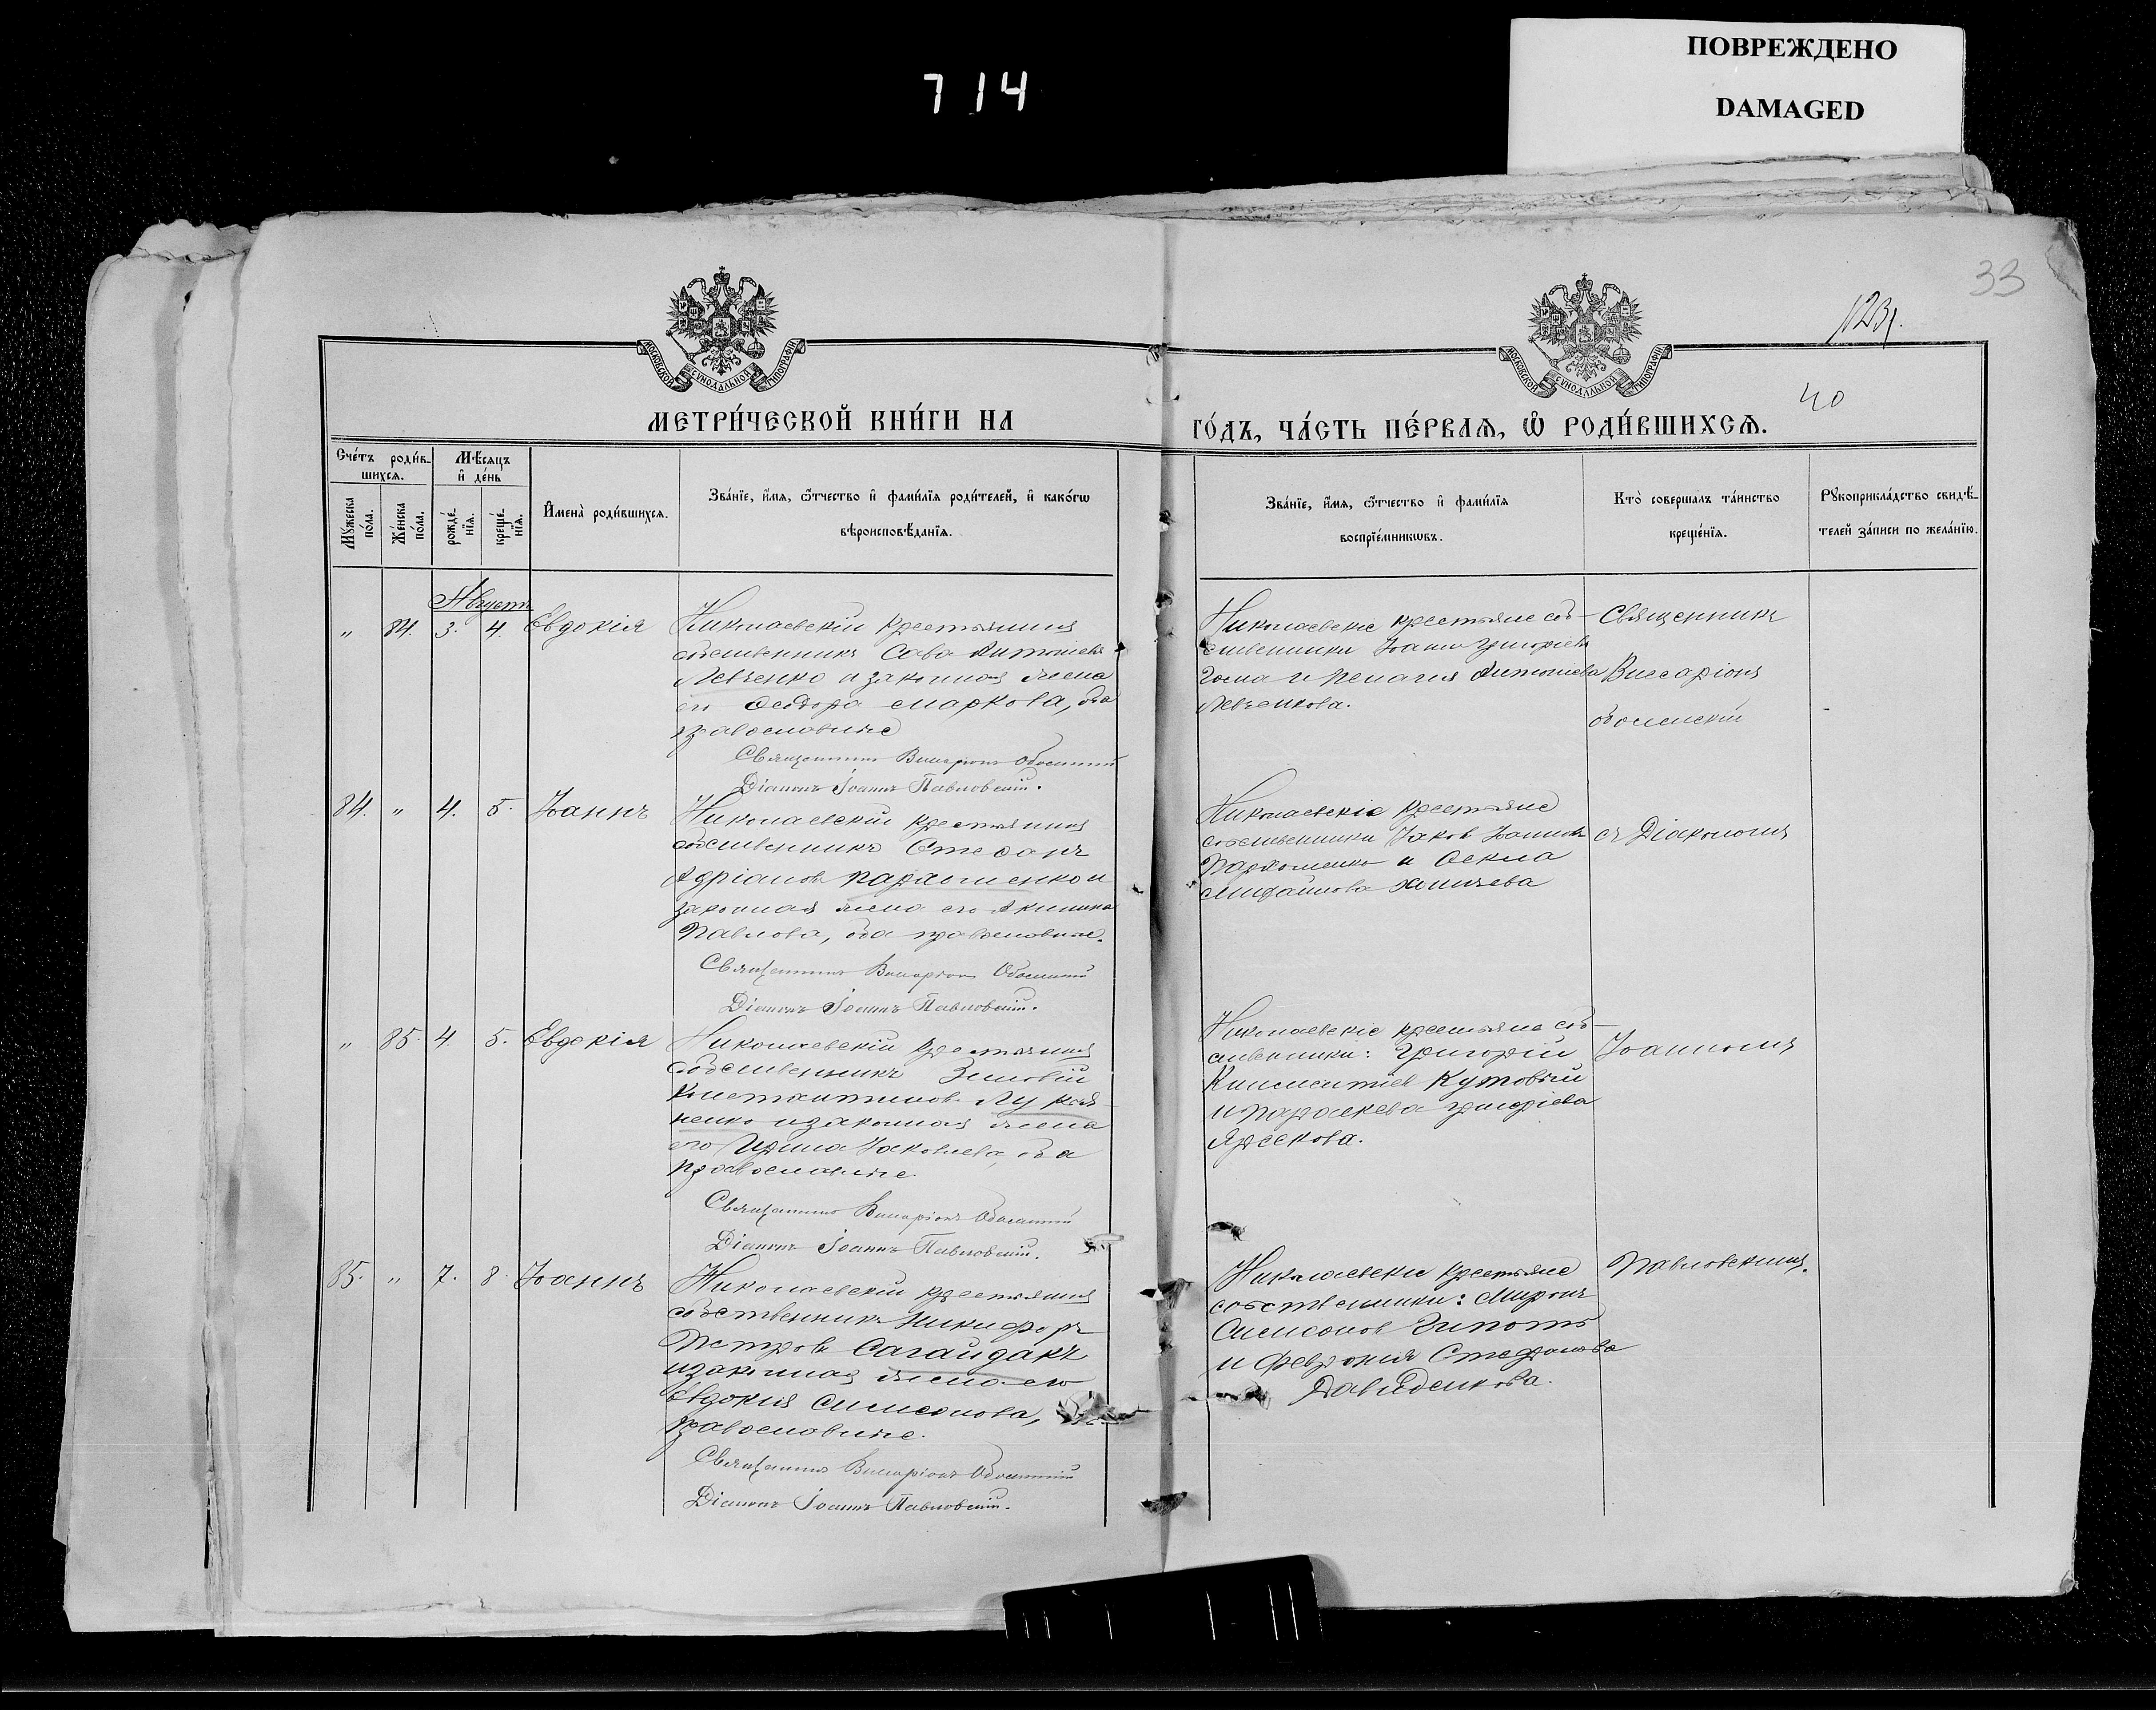 714
ПОВРЕЖДЕНО
DAMAGED
33
1231.
40
МОСКОВСКОЙ СѴНОДАЛЬНОЙ ТИПОГРАФІИ
МОСКОВСКОЙ СѴНОДАЛЬНОЙ ТИПОГРАФІИ
МЕТРИ́ЧЕСКОЙ КНИ́ГИ НА
ГО́ДЪ, ЧА́СТЬ ПЕ́РВАѦ, Ѡ҆ РОДИ́ВШИХСѦ.
Сче́тъ роди́в-
шихсѧ.
Мѣ́сяцъ
и҆ де́нь
Мꙋ́жеска по́ла.
Же́нска по́ла.
рожде́-нїѧ.
креще́-нїѧ.
И҆мена̀ роди́вшихсѧ.
Зва́нїе, и҆́мѧ, ѻ҆́тчество и҆ фами́лїѧ роди́телей, и҆ како́гѡ
вѣроисповѣ́данїѧ.
Зва́нїе, и҆́мѧ, ѻ҆́тчество и҆ фами́лїѧ
воспрїе́мникѡвъ.
Кто̀ соверша́лъ та́инство
креще́нїѧ.
Рꙋкоприкла́дство свидѣ́-
телей за́писи по жела́нїю.
Августъ
" 84. 3. 4. Евдокія
Николаевскій крестьянинъ
собственникъ Сава Антоніевъ
Левченко и законная жена
его Феодора Маркова, оба
православные
Священникъ Виссаріонъ Оболенскій
Діаконъ Іоаннъ Павловскій.
Николаевскіе крестьяне соб-
ственники Іоаннъ Григоріевъ
и Пелагія Антоніева
Левченкова.
Священникъ
Виссаріонъ
Оболенскій
84. " 4. 5. Іоаннъ
Николаевскій крестьянинъ
собственникъ Стефанъ
Адріановъ Пархоменко и
законная жена его Акилина
Павлова, оба православные.
Священникъ Виссаріонъ Оболенскій
Діаконъ Іоаннъ Павловскій.
Николаевскіе крестьяне
собственники Іаковъ Іоанновъ
Пархоменко и Фекла
Михайлова
съ Діакономъ
" 85. 4. 5. Евдокія
Николаевскій крестьянинъ
собственникъ Зиновій
Константиновъ Лукья-
ненко и законная жена
его Ирина Іаковлева, оба
православные.
Священникъ Виссаріонъ Оболенскій
Діаконъ Іоаннъ Павловскій.
Николаевскіе крестьяне соб-
ственники: Григорій
Климентіевъ Кутовый
и Параскева Григоріева
Іоанномъ
85. " 7. 8. Іоаннъ
Николаевскій крестьянинъ
собственникъ Никифоръ
Петровъ Сагайдакъ
и законная жена его
Евдокія Симеонова,
православные.
Священникъ Виссаріонъ Оболенскій
Діаконъ Іоаннъ Павловскій.
Николаевскіе крестьяне
собственники: Миронъ
Симеоновъ
и Февронія Стефанова
Давиденкова.
Павловскимъ.